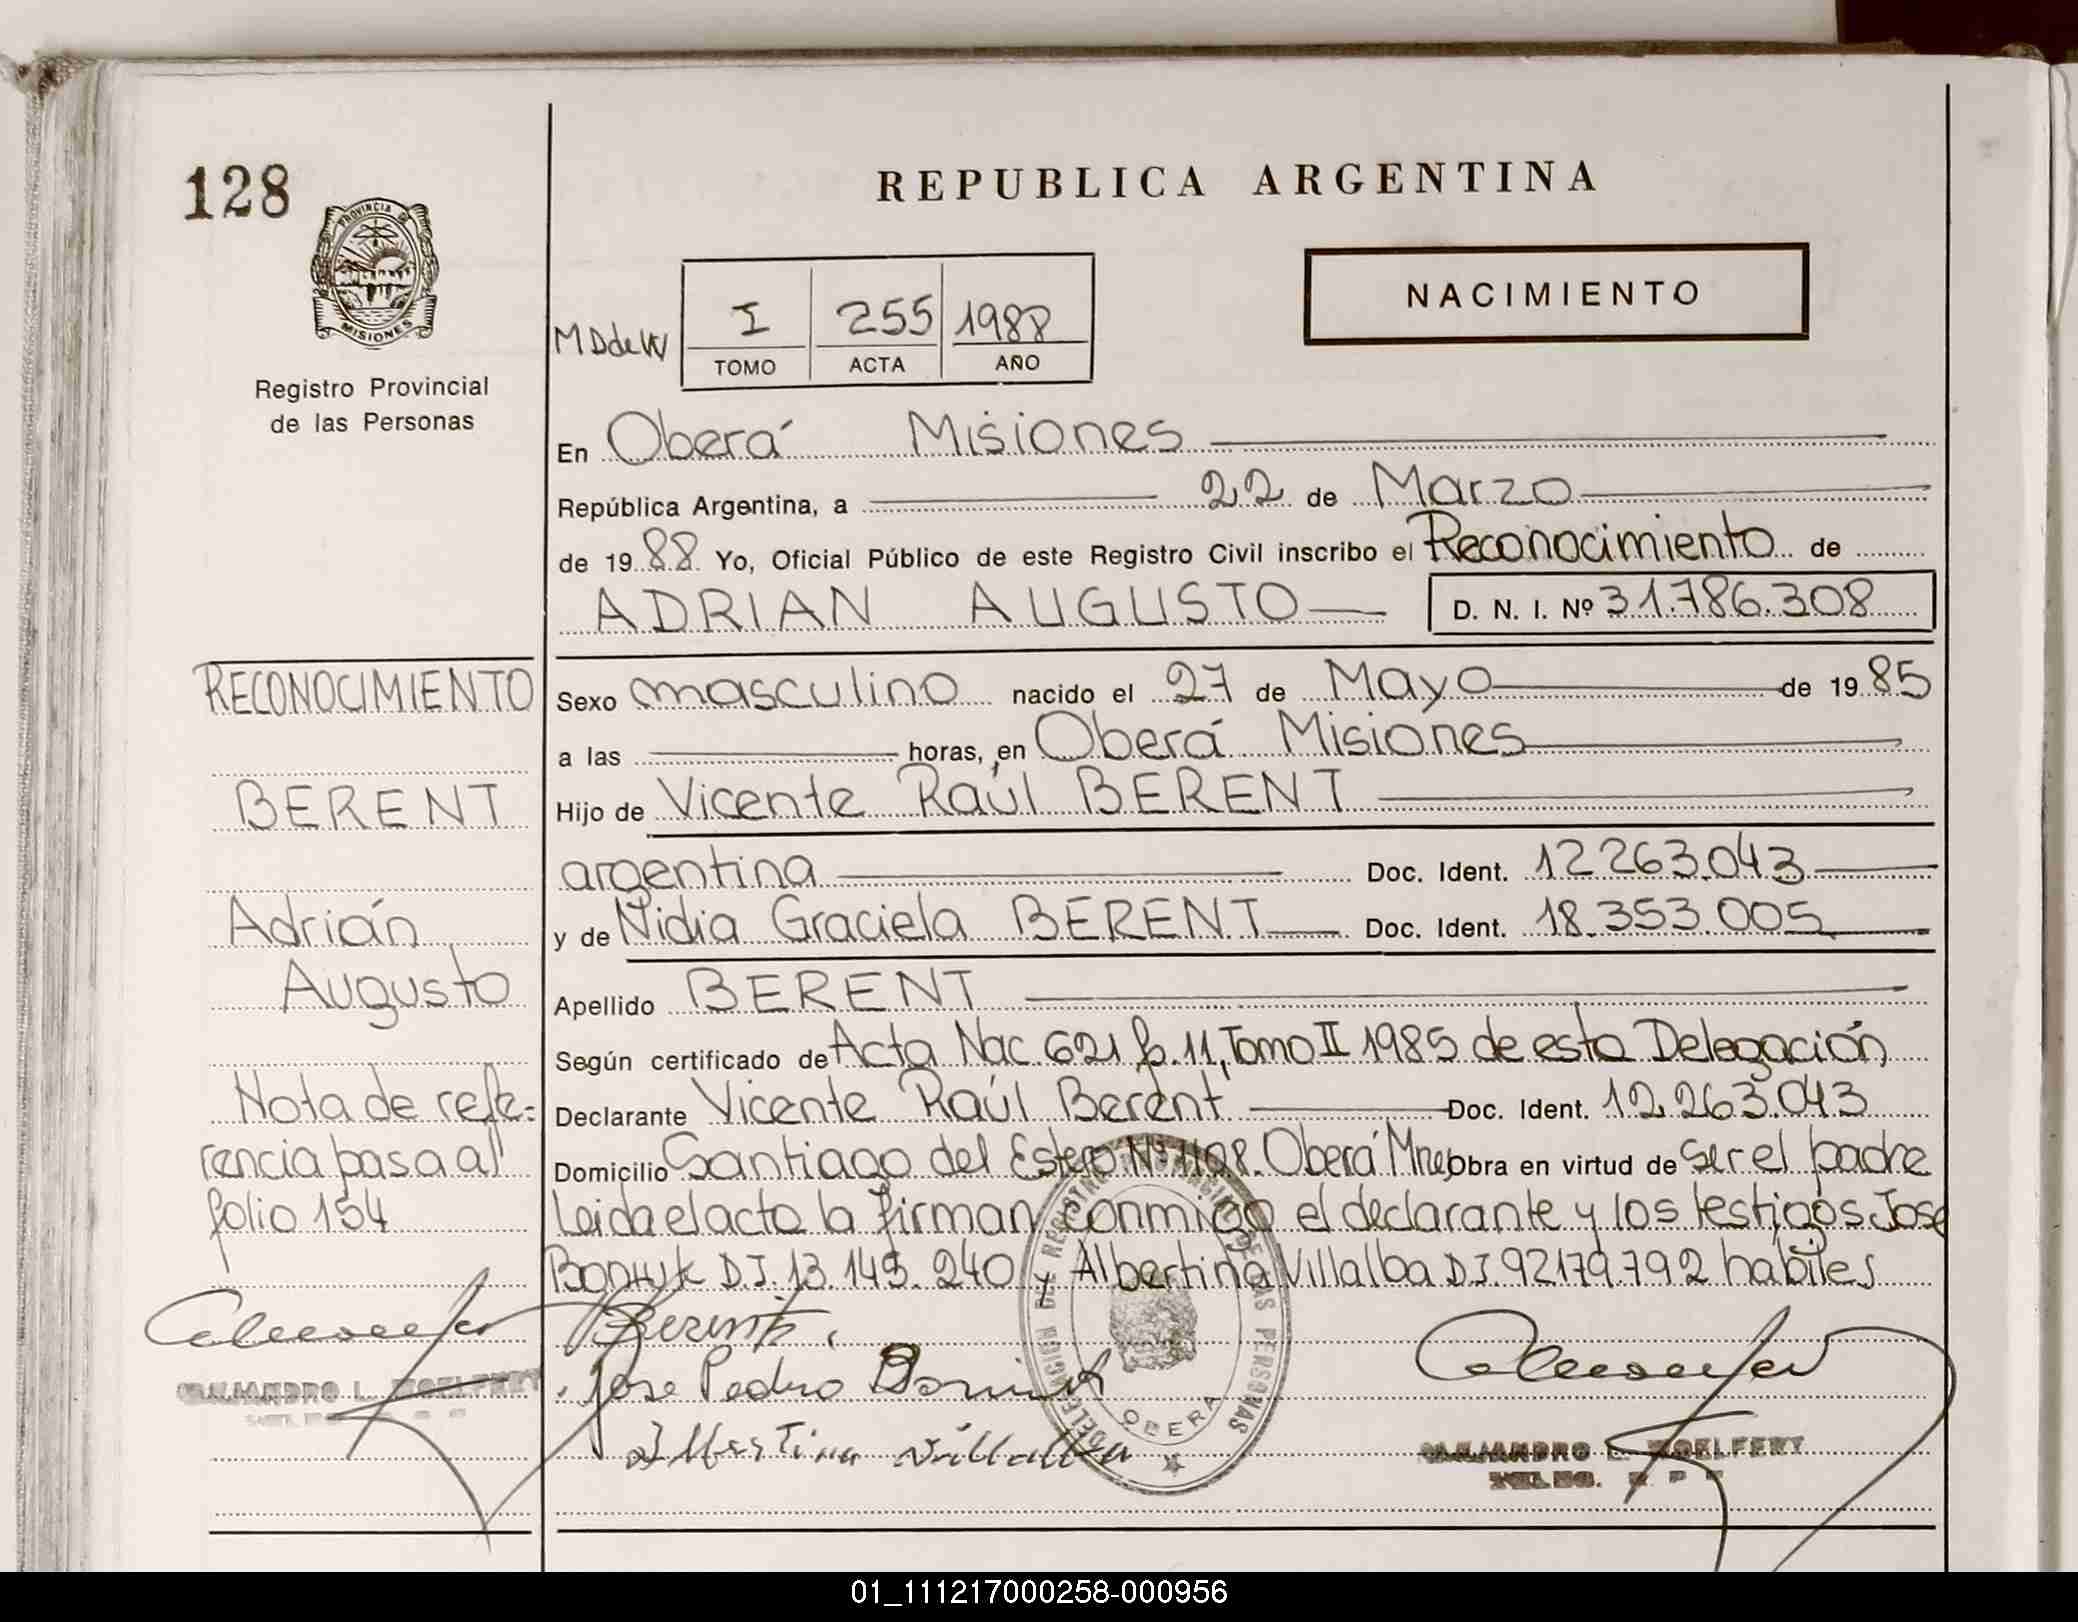 128
REPUBLICA ARGENTINA
PROVINCIA DE
MISIONES
NACIMIENTO
MDdeW
I 255 1988
TOMO ACTA AÑO
Registro Provincial
de las Personas
En Oberá Misiones
República Argentina, a 22 de Marzo
de 1988 Yo, Oficial Público de este Registro Civil inscribo el Reconocimiento de
ADRIAN AUGUSTO D. N. I. Nº 31.786.308
RECONOCIMIENTO
Sexo masculino nacido el 27 de Mayo de 1985
a las horas, en Oberá Misiones
BERENT
Hijo de Vicente Raúl BERENT
argentina Doc. Ident. 12263.043
Adrián
y de Nidia Graciela BERENT Doc. Ident. 18.353.005
Augusto
Apellido BERENT
Según certificado de Acta Nac. 621 fo. 11, Tomo II 1985 de esta Delegación
Nota de refe=
Declarante Vicente Raúl Berent Doc. Ident. 12.263.043
rencia pasa al
Domicilio Santiago del Estero Nº 1108. Oberá Mnes Obra en virtud de ser el padre
folio 154
Leida el acta la firman conmigo el declarante y los testigos José
D.I. 13.145.240 y Albertina Villalba D.I. 92179.792 habiles
Berent
Jose Pedro
Albertina Villalba
DELEGACION DEL REGISTRO PROVINCIAL DE LAS PERSONAS
OBERA
ALEJANDRO L. WOELFERT
ALEJANDRO L. WOELFERT
DELEG. R P P
01_111217000258-000956